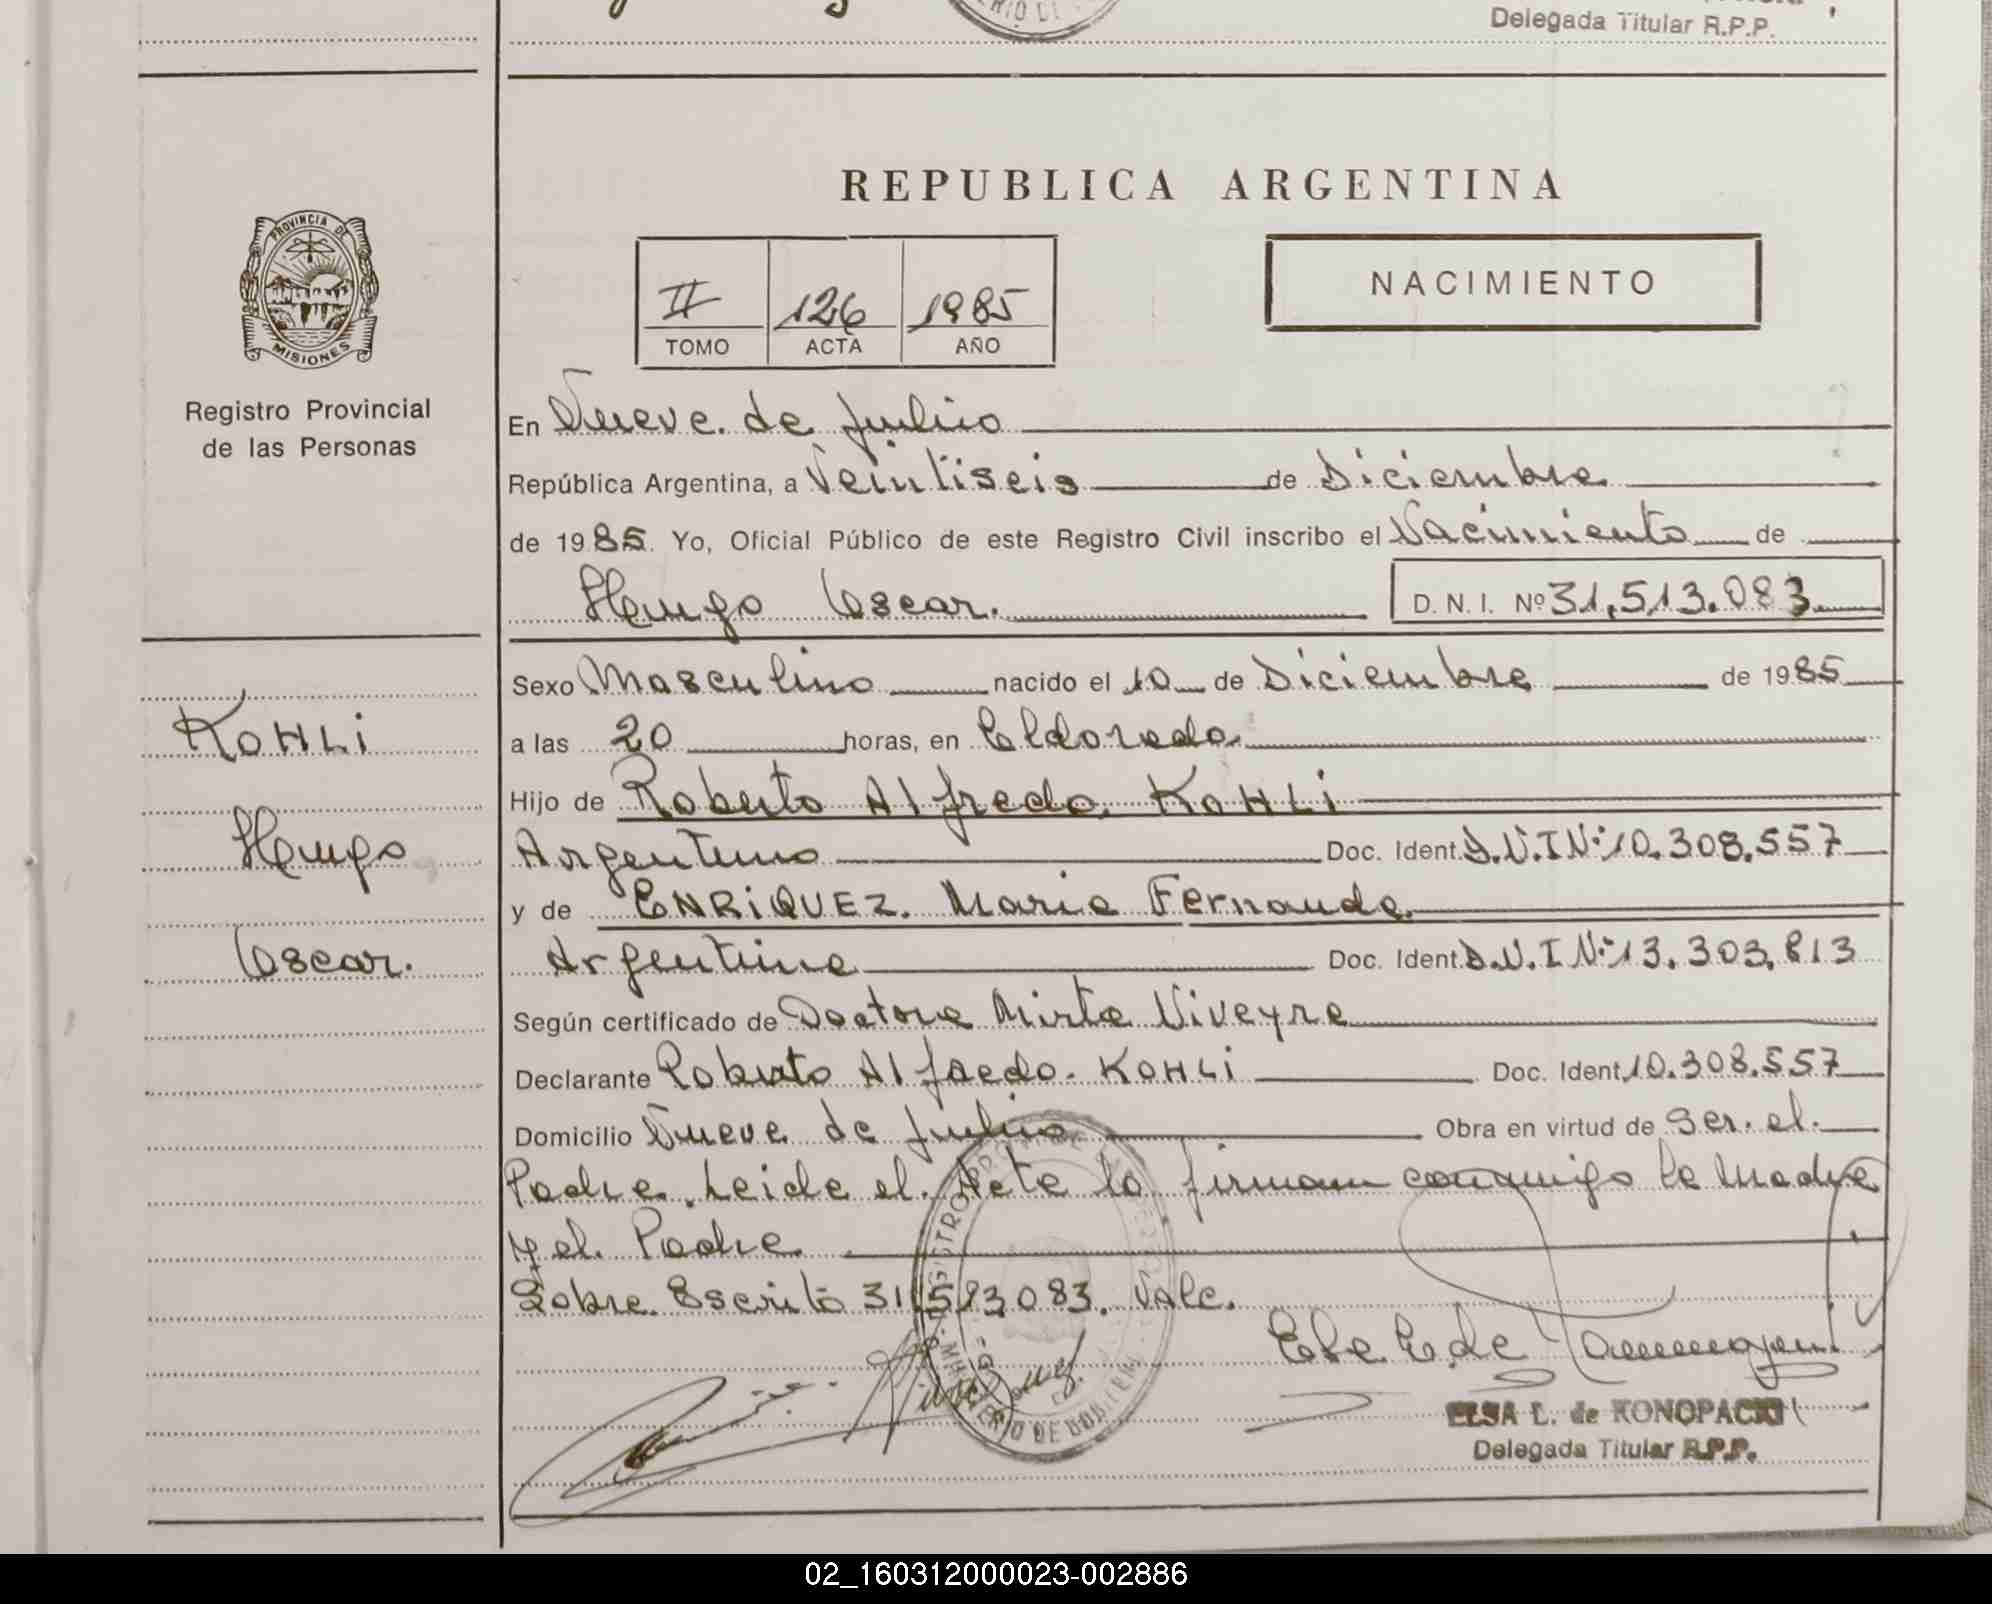 Delegada Titular R.P.P.
REPUBLICA ARGENTINA
PROVINCIA DE
MISIONES
Registro Provincial
de las Personas
II 126 1985
TOMO ACTA AÑO
NACIMIENTO
En Nueve de Julio
República Argentina, a Veintiseis de Diciembre
de 1985. Yo, Oficial Público de este Registro Civil inscribo el Nacimiento de
Hugo Oscar. D. N. I. Nº 31.513.083
Sexo Masculino nacido el 10 de Diciembre de 1985
KOHLi
a las 20 horas, en Eldorado
Hijo de Roberto Alfredo KOHLi
Hugo
Argentino Doc. Ident. D.N.I Nº 10.308.557
y de ENRiQUEZ. Maria Fernanda
Oscar.
Argentina Doc. Ident. D.N.I Nº 13.303.813
Según certificado de Doctora Mirta Viveyra
Declarante Roberto Alfredo. KOHLi Doc. Ident. 10.308.557
Domicilio Nueve de Julio Obra en virtud de Ser. el.
Padre. Leida el. Acta la firman conmigo la Madre
y el. Padre
Sobre Escrito 31513083. Vale.
ELSA L. de KONOPACKI
Delegada Titular R.P.P.
02_160312000023-002886